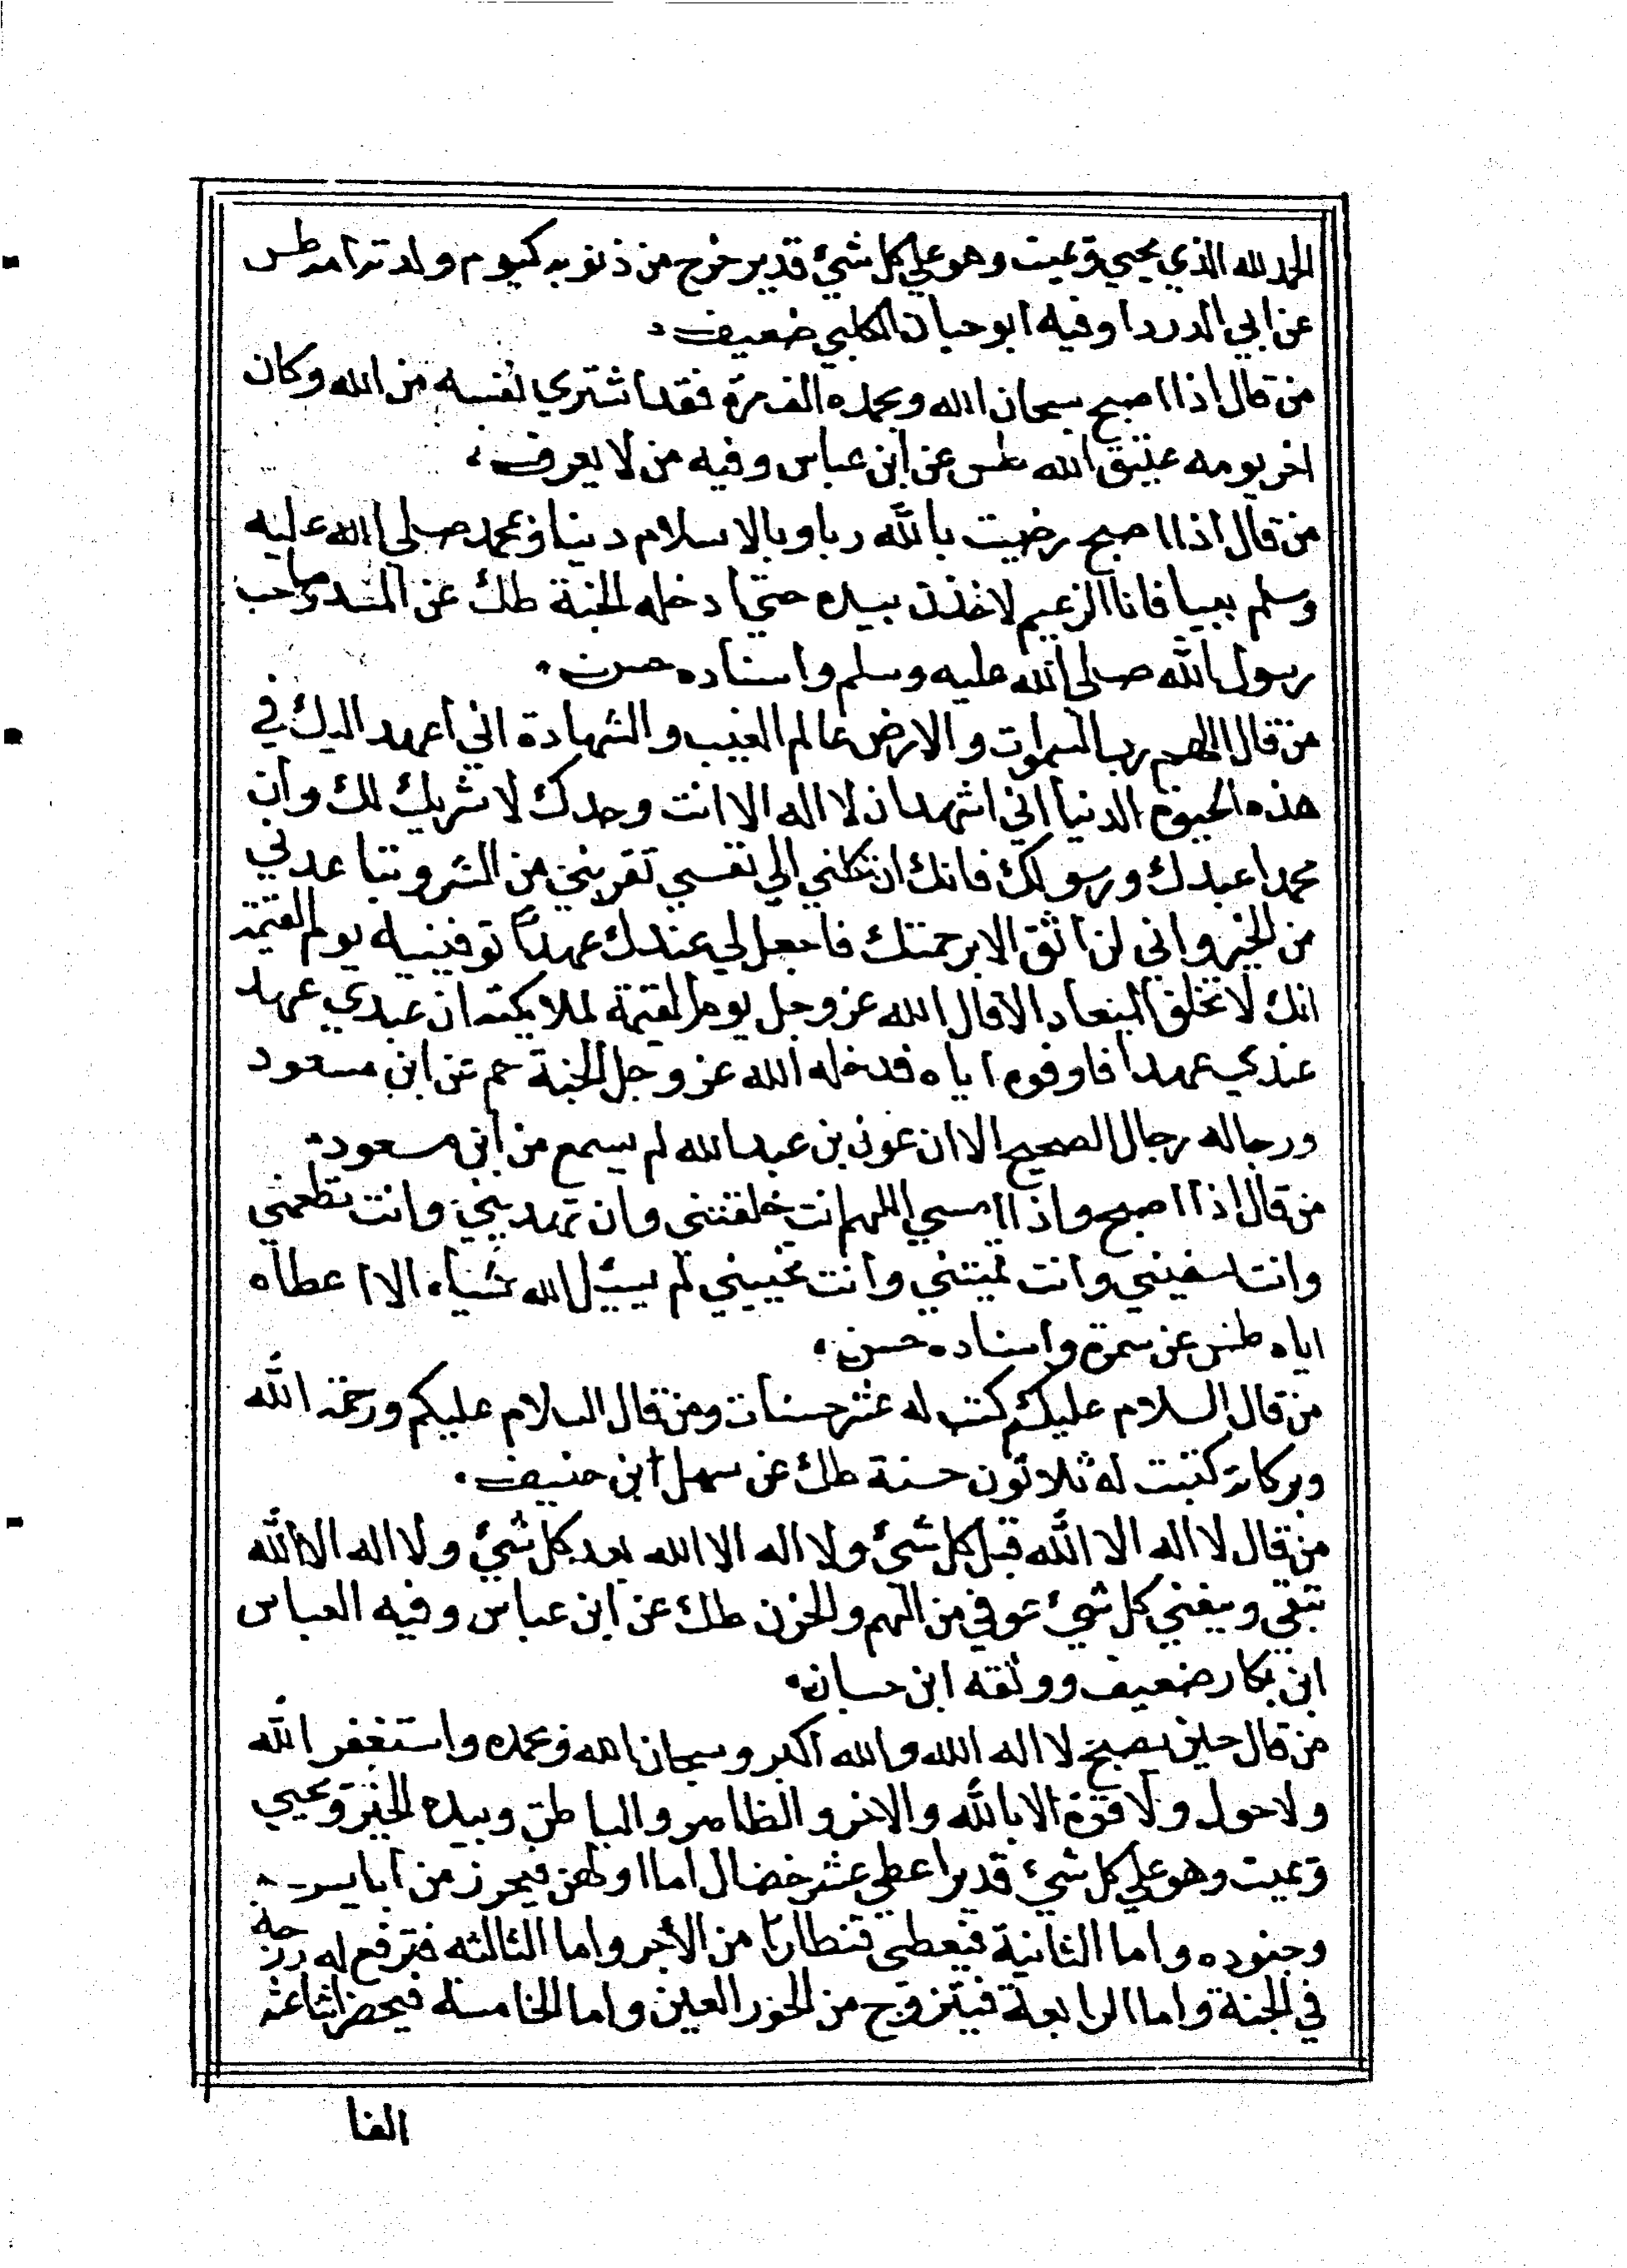 الحمد لله الذي يحيي ويميت وهو علي كل شيئ قدير خرج من ذنوبه كيوم ولدته امه طس
عن ابي الدردا وفيه ابو حبان الكلبي ضعيف
من قال اذا اصبح سبحان الله وبحمده الف مرة فقد اشتري نفسه من الله وكان
اخر يومه عتيق الله طس عن ابن عباس وفيه من لا يعرف
من قال اذا اصبح رضيت بالله ربا وبالاسلام دينا وبمحمد صلي الله عليه
وسلم نبيا فانا الزعيم لاخذن بيده حتي ادخله الجنة طك عن المنيذر صاحب
رسول الله صلي الله عليه وسلم واسناده حسن
من قال اللهم رب السموات والارض عالم الغيب والشهادة اني اعهد اليك في
هذه الحيوة الدنيا اني اشهد ان لا اله الا انت وحدك لا شريك لك وان
محمدا عبدك ورسولك فانك ان تكلني الي نفسي تقربني من الشر وتباعدني
من الخير واني لن اثق الا برحمتك فاجعل لي عندك عهدا توفينيه يوم القيمة
انك لا تخلف الميعاد الا قال الله عز وجل يوم القيمة لملايكته ان عبدي عهد
عندي عهدا فاوفوه اياه فدخله الله عز وجل الجنة حم عن ابن مسعود
ورجاله رجال الصحيح الا ان عون بن عبد الله لم يسمع من ابن مسعود
من قال اذا اصبح واذا امسي اللهم انت خلقتني وان تهديني وانت تطعمني
وانت تسقيني وانت تميتني وانت تحييني لم يسئل الله شياء الا اعطاه
اياه طس عن سمرة واسناده حسن
من قال السلام عليكم كتب له عشر حسنات ومن قال السلام عليكم ورحمة الله
وبركاته كتبت له ثلاثون حسنة طك عن سهل ابن حنيف
من قال لا اله الا الله قبل كل شئ ولا اله الا الله بعد كل شيئ ولا اله الا الله
تبقي ويفني كل شيئ عوفي من الهم والحزن طك عن ابن عباس وفيه العباس
ابن بكار ضعيف ووثقه ابن حسان
من قال حين يصبح لا اله الله والله اكبر وسبحان الله وبحمده واستغفر الله
ولا حول ولا قوة الا بالله والاخر والظاهر والباطن وبيده الخير ويحيي
ويميت وهو علي كل شيئ قدير اعطي عشر خصال اما اولهن فيحرز من
وجنوده واما الثانية فيعطي قنطارا من الأجر واما الثالثه فترفع له درجة
في الجنة واما الرابعة فيتزوج من الحور العين واما الخامسة فيحضر اثنا عشر
الفا